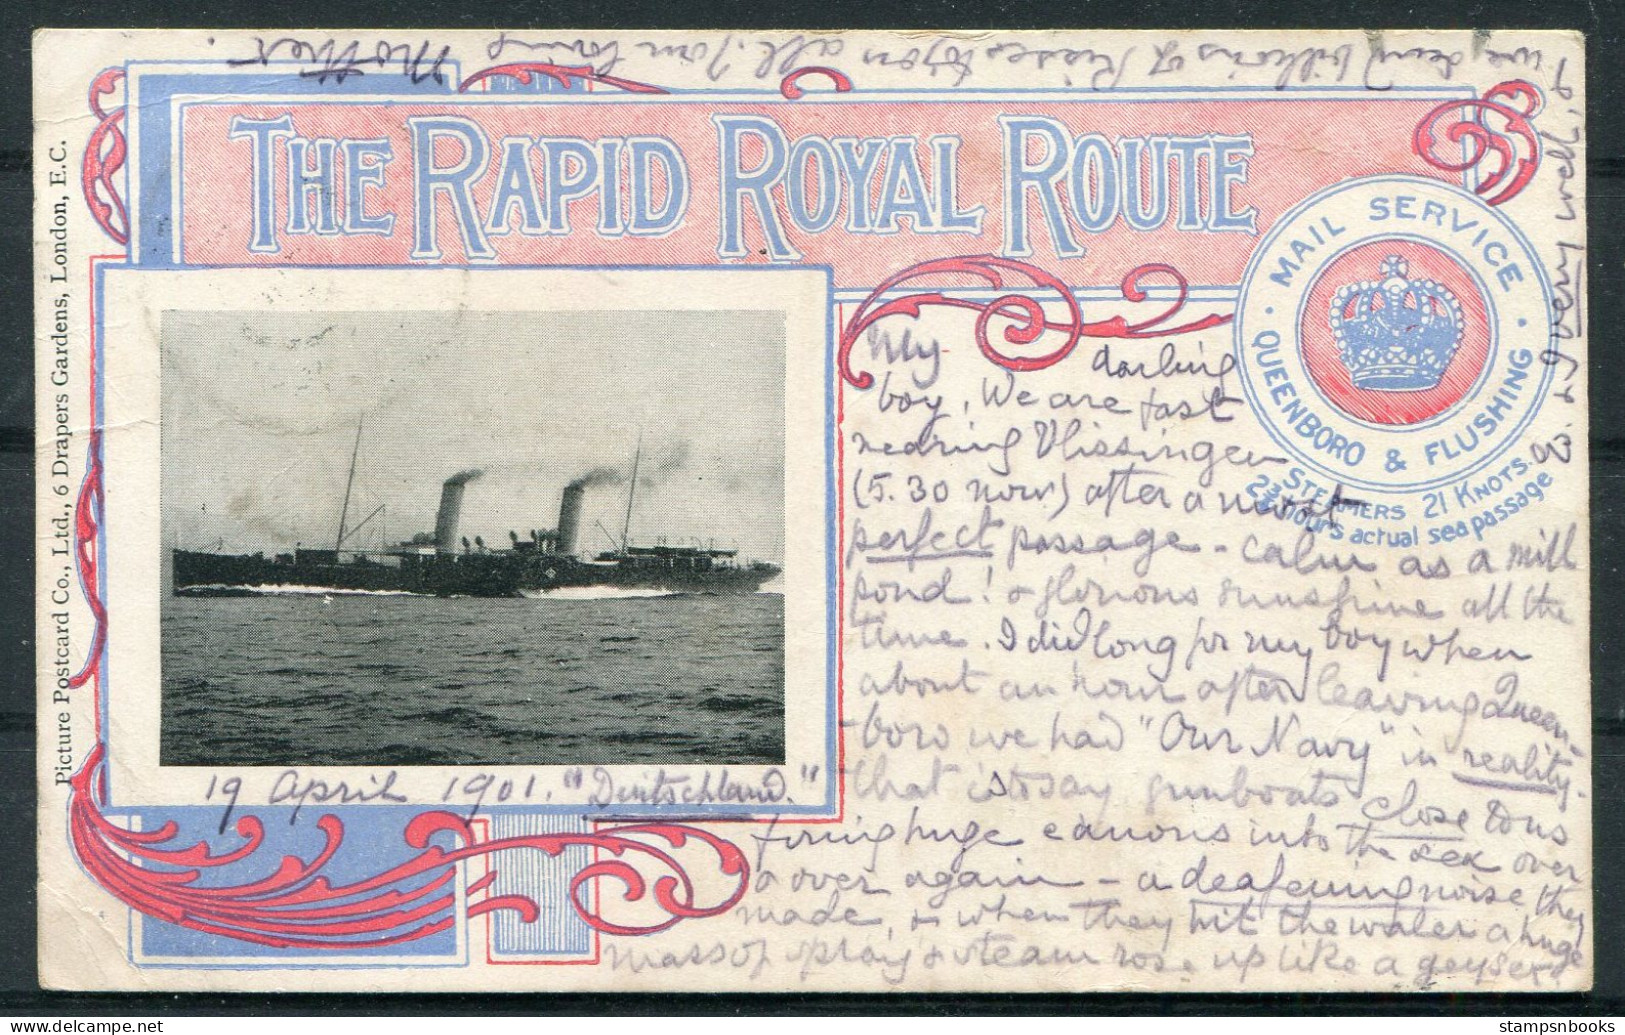 THE RAPID ROYAL ROUTE
MAIL SERVICE
· QUEENBORO & FLUSHING ·
STEAMERS 21 KNOTS.
2¾ hours actual sea passage
Picture Postcard Co., Ltd., 6 Drapers Gardens, London, E.C.
19 April 1901. "Deutschland."
My darling
boy, We are fast
nearing Vlissingen
(5.30 now) after a most
perfect passage - calm as a mill
pond! & glorious sunshine all the
time. I did long for my boy when
about an hour after leaving Queen-
-boro we had "Our Navy" in reality.
that is to say gunboats close to us
firing huge cannons into the sea over
& over again - a deafening noise they
made, & when they hit the water a huge
mass of spray & steam rose up like a geyser.
very well, &
we send billions of kisses to you all. Your loving
Mother.
stampsnbooks